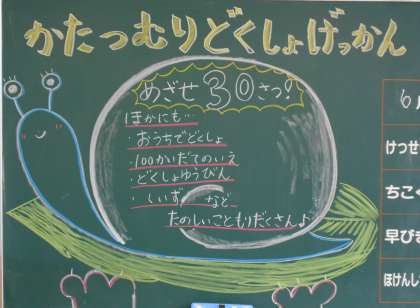 かたつむりどくしょげっかん
めざせ30さつ!
ほかにも…
・おうちでどくしょ
・100かいだてのいえ
・どくしょゆうびん
・しいず など
たのしいこともりだくさん♪
6
けっせ
ちこく
早びき
ほけんじ